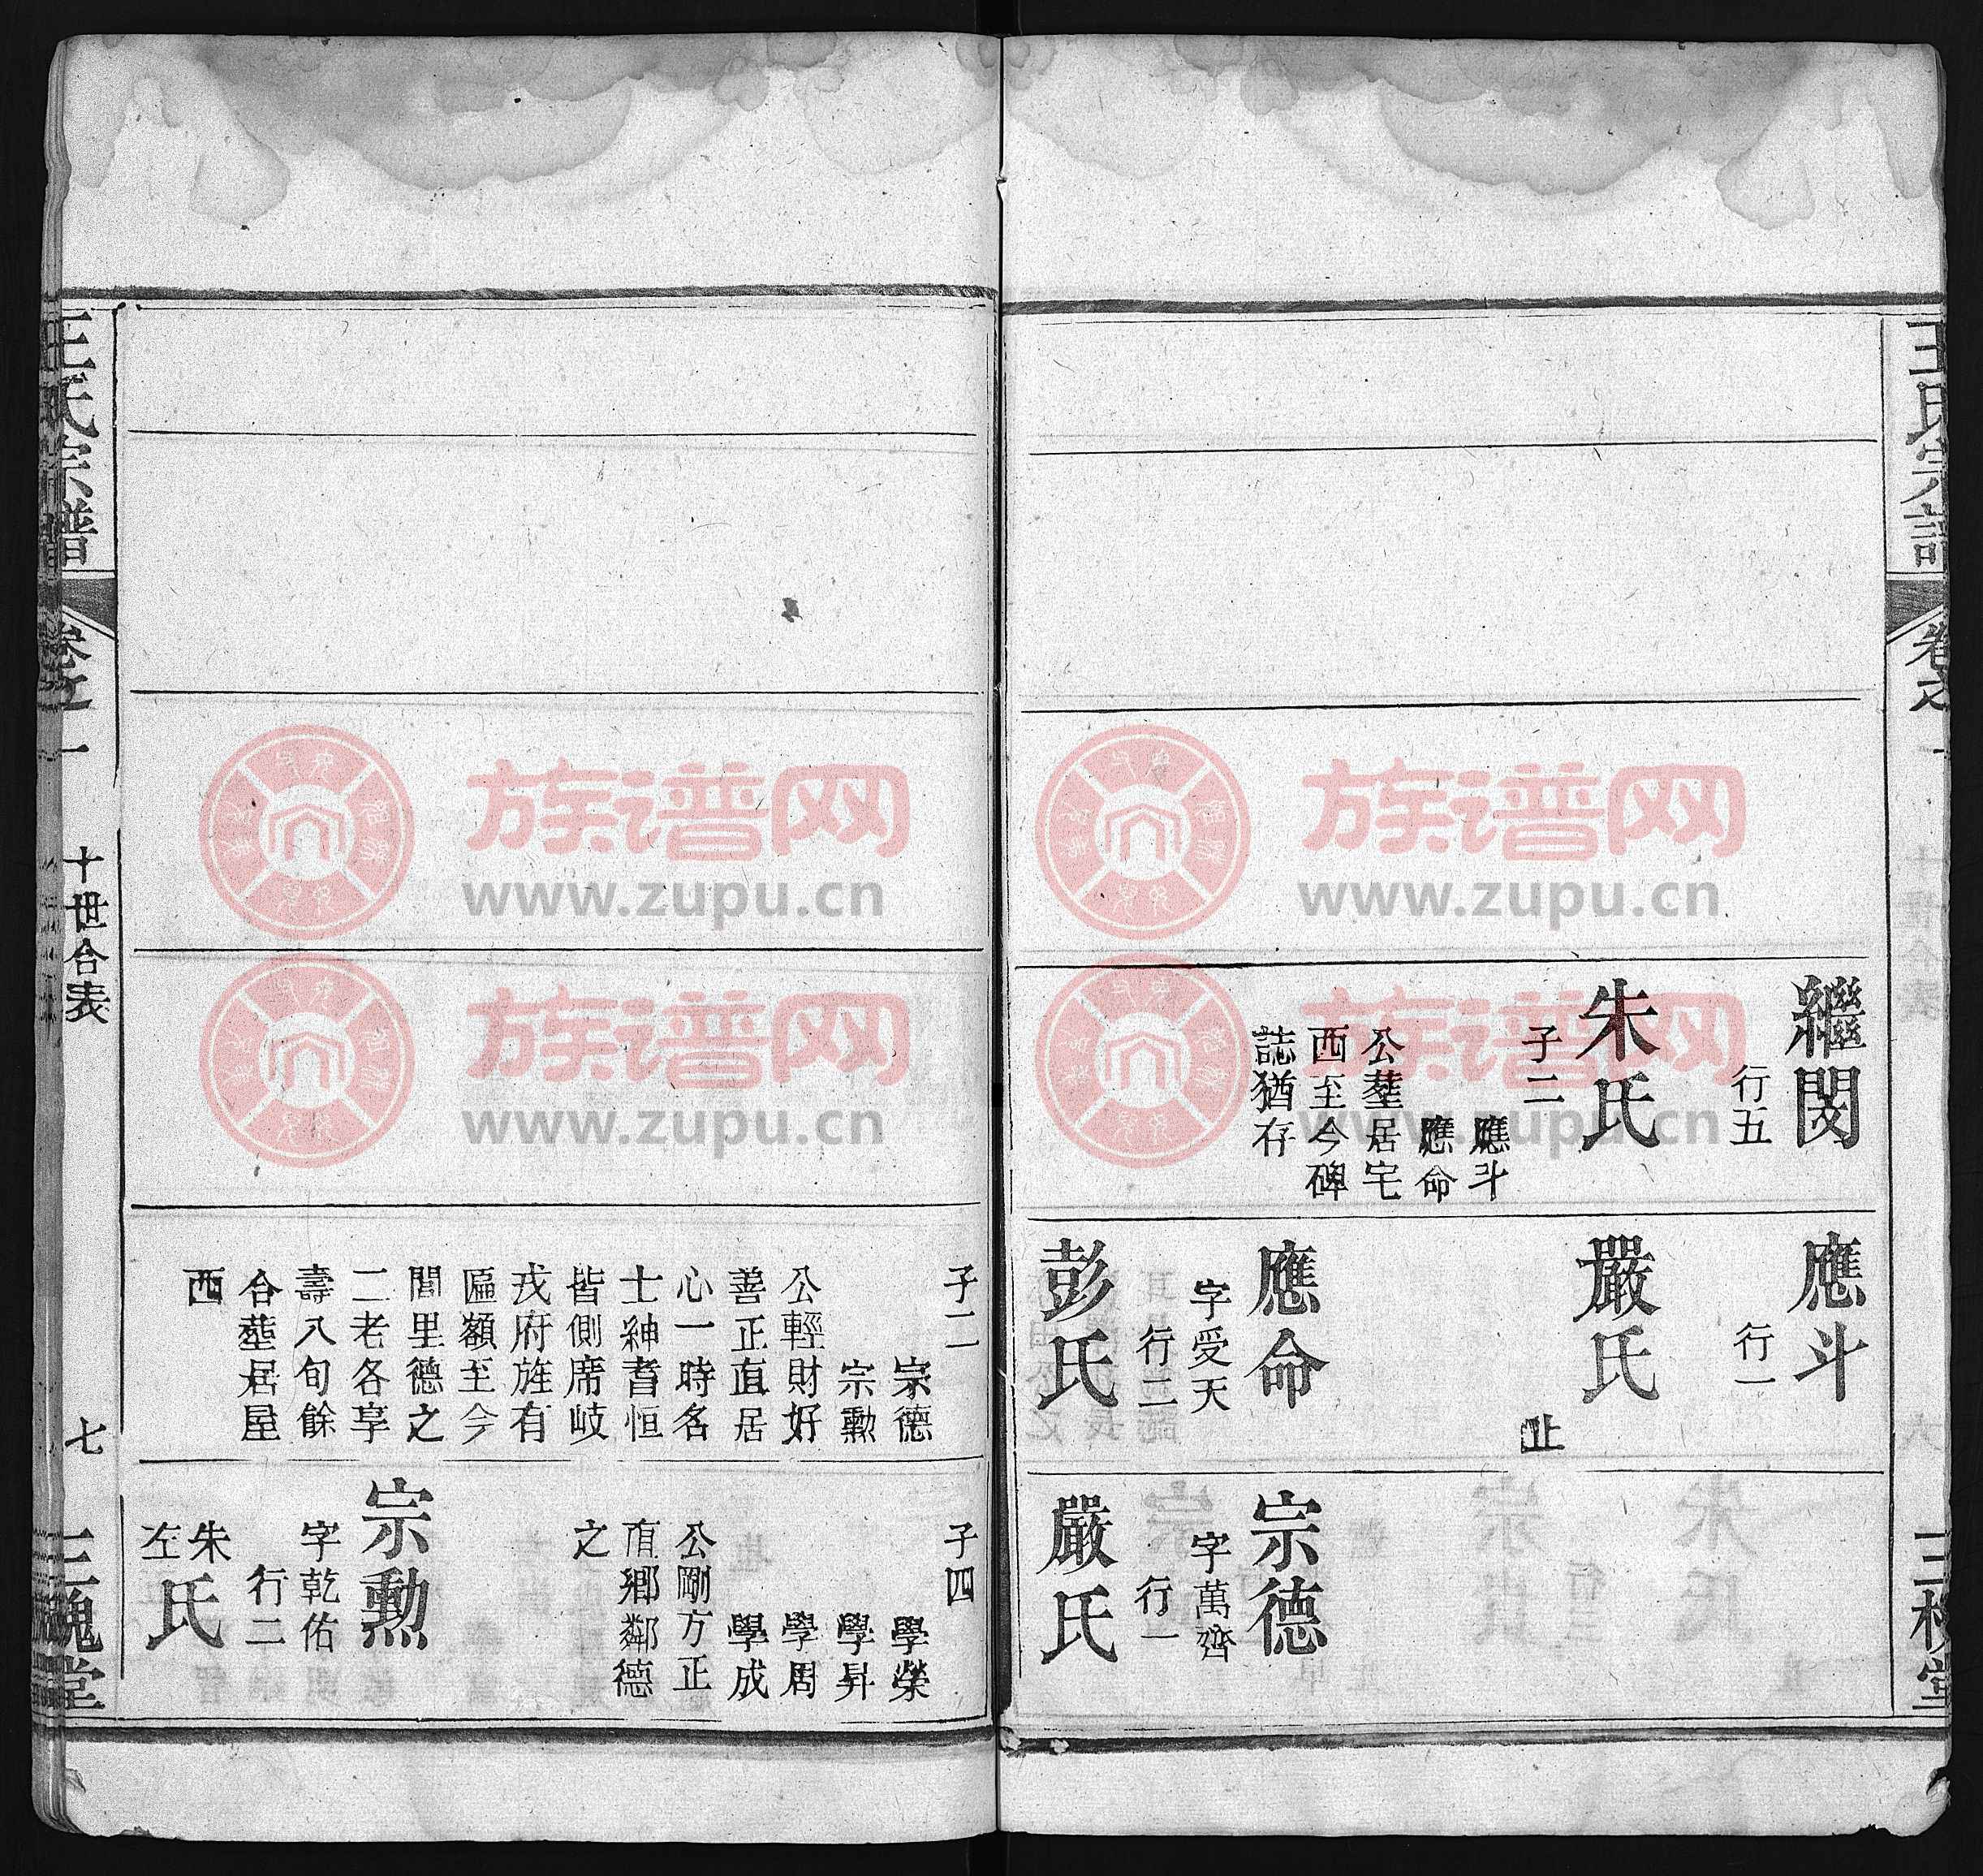 王氏宗譜
卷之一
繼閔
行五
朱氏
子二
應斗
應命
公塟居宅
西至今碑
誌猶存
應斗
行一
嚴氏
止
應命
字受天
行二
彭氏
宗德
字萬齊
行一
嚴氏
子二
宗德
宗勳
公輕財好
善正直居
心一時名
士紳耆恒
皆側席岐
戎府旌有
匾額至今
閭里德之
二老各享
壽八旬餘
合塟居屋
西
子四
學榮
學昇
學周
學成
公剛方正
直鄉鄰德
之
宗勳
字乾佑
行二
朱氏
左
王氏宗譜
卷之一
十世合表
七
三槐堂
族谱网
www.zupu.cn
族谱网
www.zupu.cn
族谱网
www.zupu.cn
族谱网
www.zupu.cn